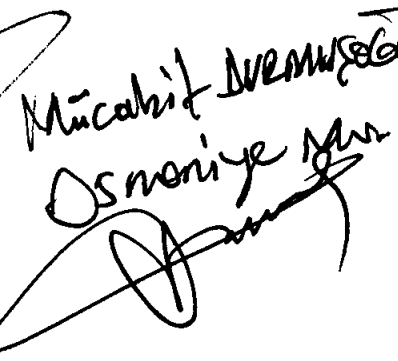 Mücahit DURMUŞOĞ
Osmaniye Mv.